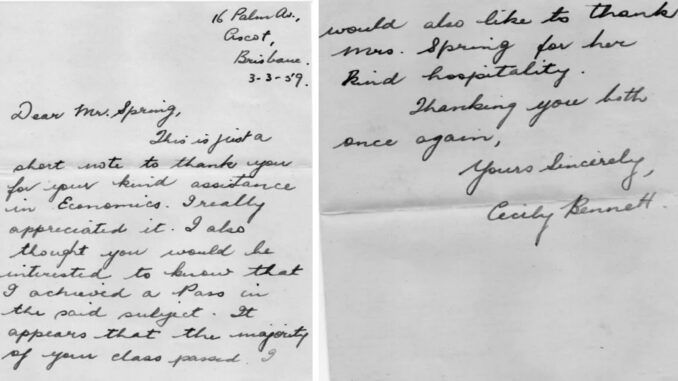 16 Palm Av.,
Ascot,
Brisbane.
3-3-59.
Dear Mr. Spring,
This is just a
short note to thank you
for your kind assistance
in Economics. I really
appreciated it. I also
thought you would be
interested to know that
I achieved a Pass in
the said subject. It
appears that the majority
of your class passed. I
would also like to thank
Mrs. Spring for her
kind hospitality.
Thanking you both
once again,
Yours Sincerely,
Cecily Bennett.